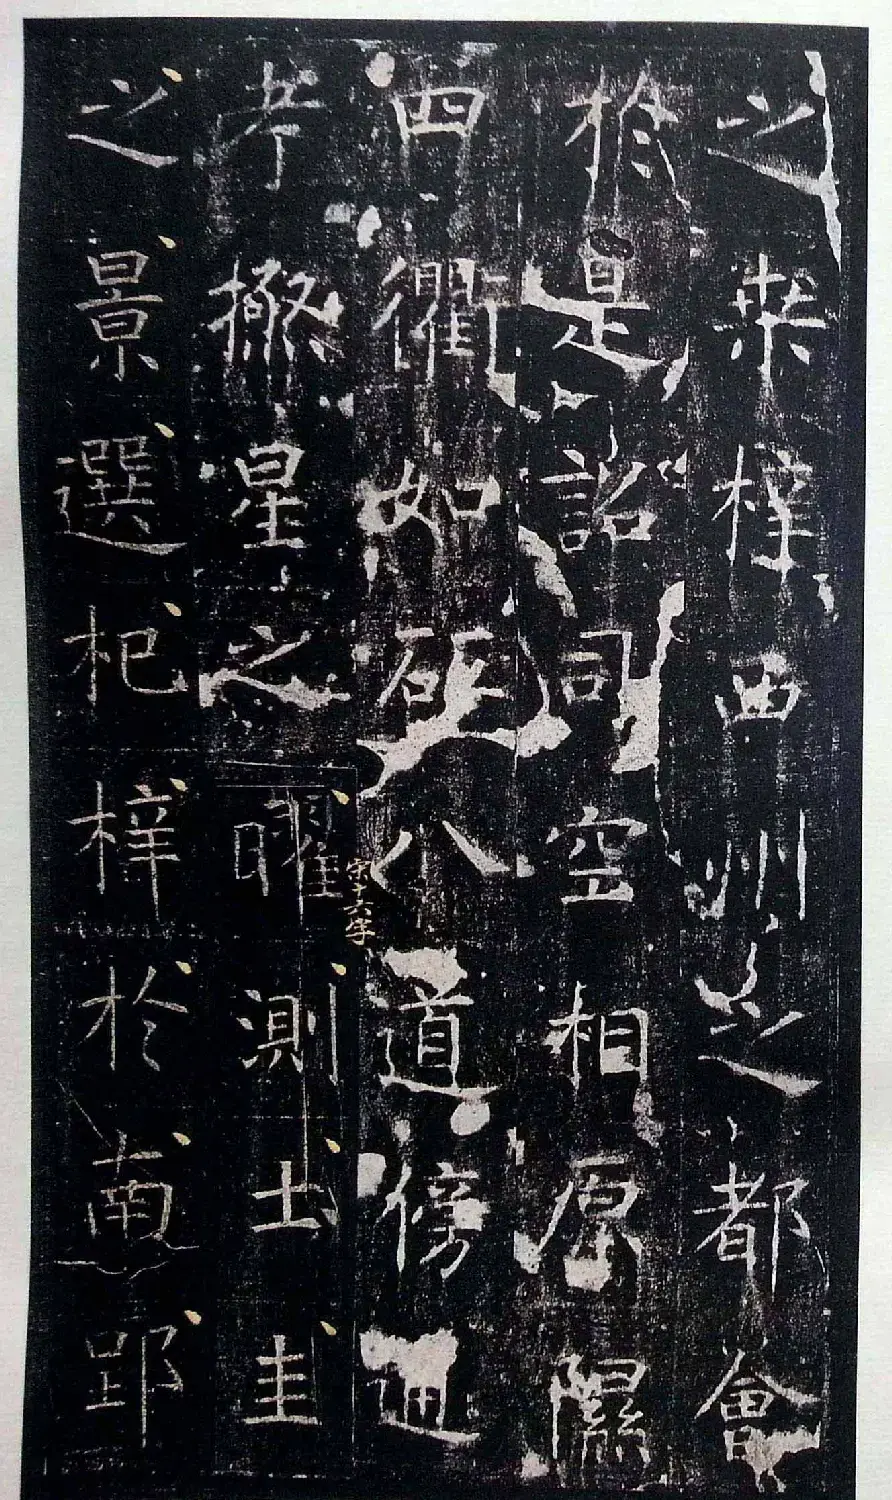 之桒梓西州之都會
於是詔司空相原隰
四衢如砥八道傍通
考極星之曜測土圭
之景選杞梓於南郢